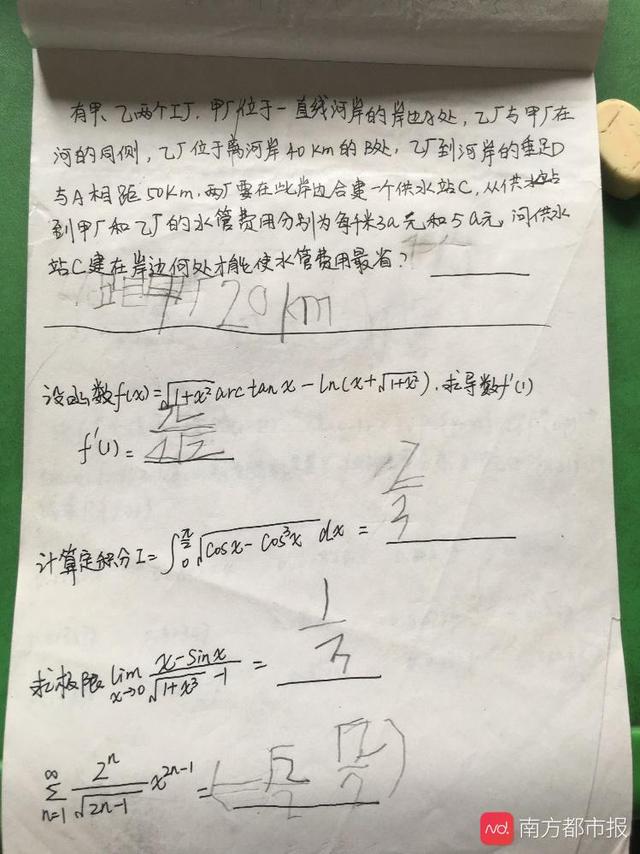 有甲、乙两个工厂,甲厂位于一直线河岸的岸边A处,乙厂与甲厂在
河的同侧,乙厂位于离河岸40km的B处,乙厂到河岸的垂足D
与A相距50Km,两厂要在此岸边合建一个供水站C,从供水站
到甲厂和乙厂的水管费用分别为每千米3a元和5a元,问供水
站C建在岸边何处才能使水管费用最省?
甲厂20km
设函数f(x)=√(1+x²) arc tan x - ln(x+√(1+x²)). 求导数f'(1)
f'(1)= π/(4√2)
计算定积分I=∫₀^(π/2) √(cosx-cos³x) dx = 2/3
求极限 lim x→0 (x-sinx)/(√(1+x³) -1) = 1/3
∑ n=1 ∞ 2ⁿ/√(2n-1) x^(2n-1) = (-√2/2 √2/2)
南方都市报